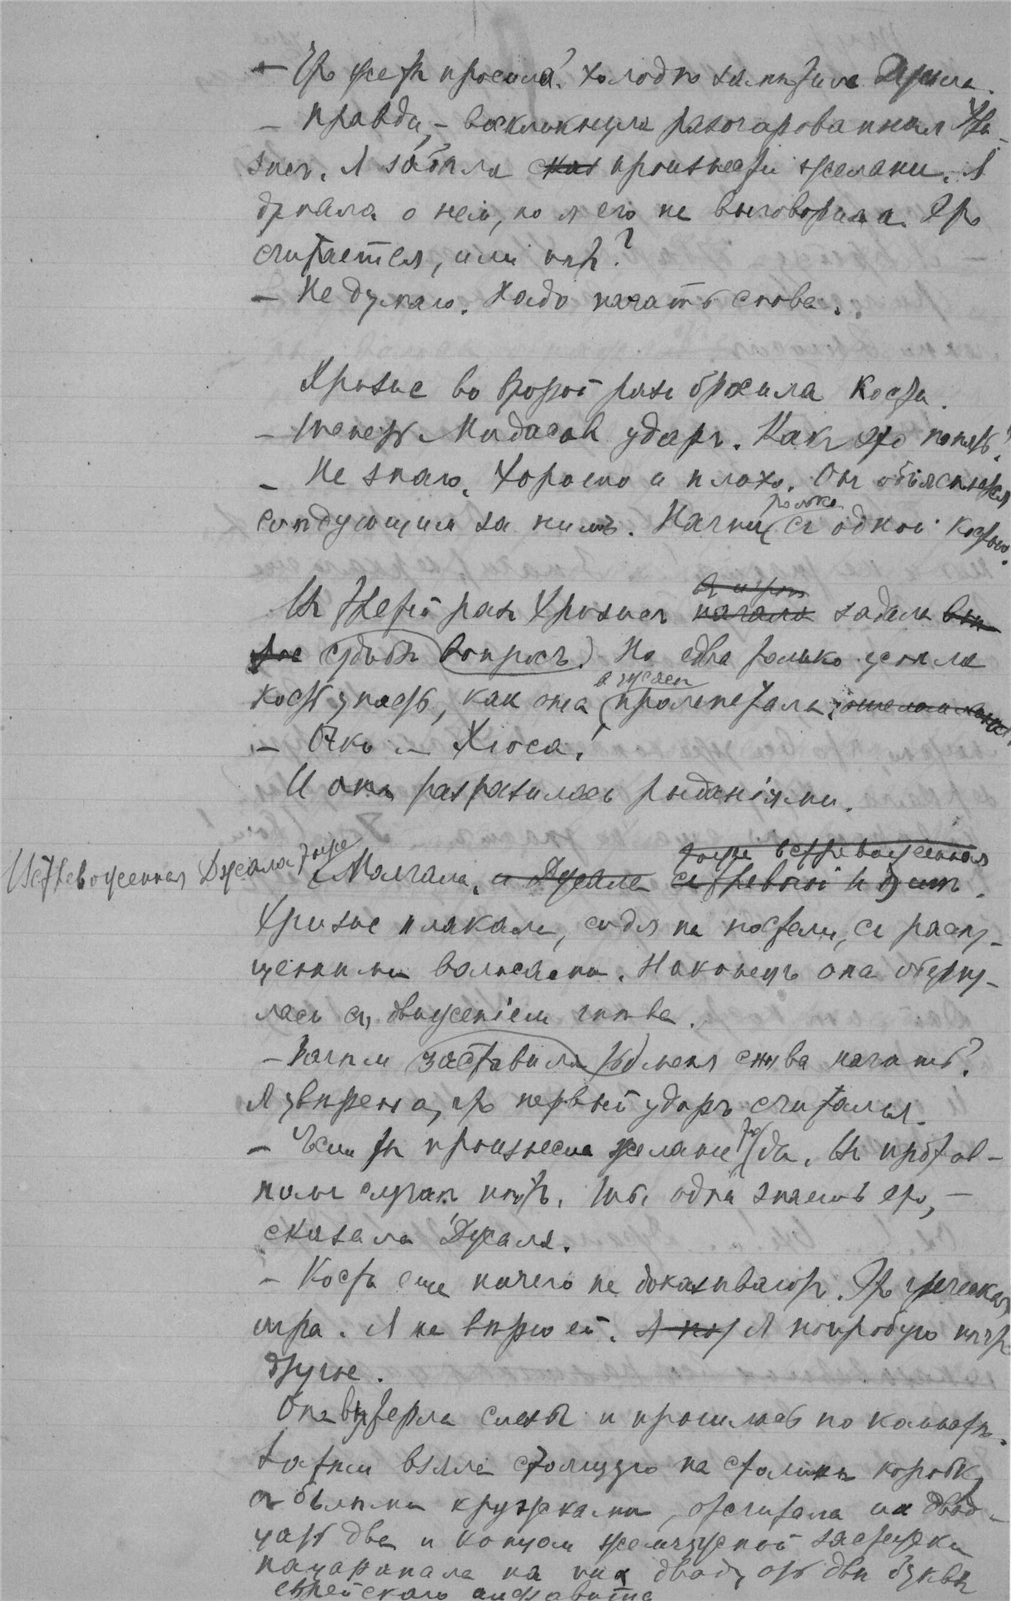 — Что же ты просила? холодно заметила Джала.
— Правда, — воскликнула разочарованная Хри-
зисъ. Я забыла произнести желаніе. Я
думала о немъ, но я его не выговорила. Это
считается, или нѣтъ?
— Не думаю. Надо начать снова.
Хризисъ во второй разъ бросила кости.
— Мидасовъ ударъ. Какъ это понять?
— Не знаю. Хорошо и плохо. Онъ объясняется
слѣдующимъ за нимъ. Начни только съ одной костью.
Въ третій разъ Хризисъ начала задала во-
просъ судьбѣ вопросъ. Но едва только успѣла
кость упасть, какъ она въ ужасѣ пролепетала:
— Очко Хіоса!
И она разразилась рыданіями.
Встревоженная Джала тоже Молчала, и Джала тоже встревоженная
Хризисъ плакала, сидя на постели, съ распу-
щенными волосами. Наконецъ она оберну-
лась съ движеніемъ гнѣва.
— Зачѣмъ заставила ты меня снова начать?
Я увѣрена, что первый ударъ считался.
— Если ты произнесла желаніе, то да. Въ против-
номъ случаѣ нѣтъ. Ты одна знаешь это, —
сказала Джала.
— Кости еще ничего не доказываютъ. Это греческая
игра. Я не вѣрю ей. Я попробую нѣчто
другое.
Она вытерла слезы и прошлась по комнатѣ.
Затѣмъ взяла стоящую на столикѣ коробку
съ бѣлыми кружками, отсчитала ихъ двад-
цать два и концомъ жемчужной застежки
нацарапала на нихъ двадцать двѣ буквы
еврейскаго алфавита